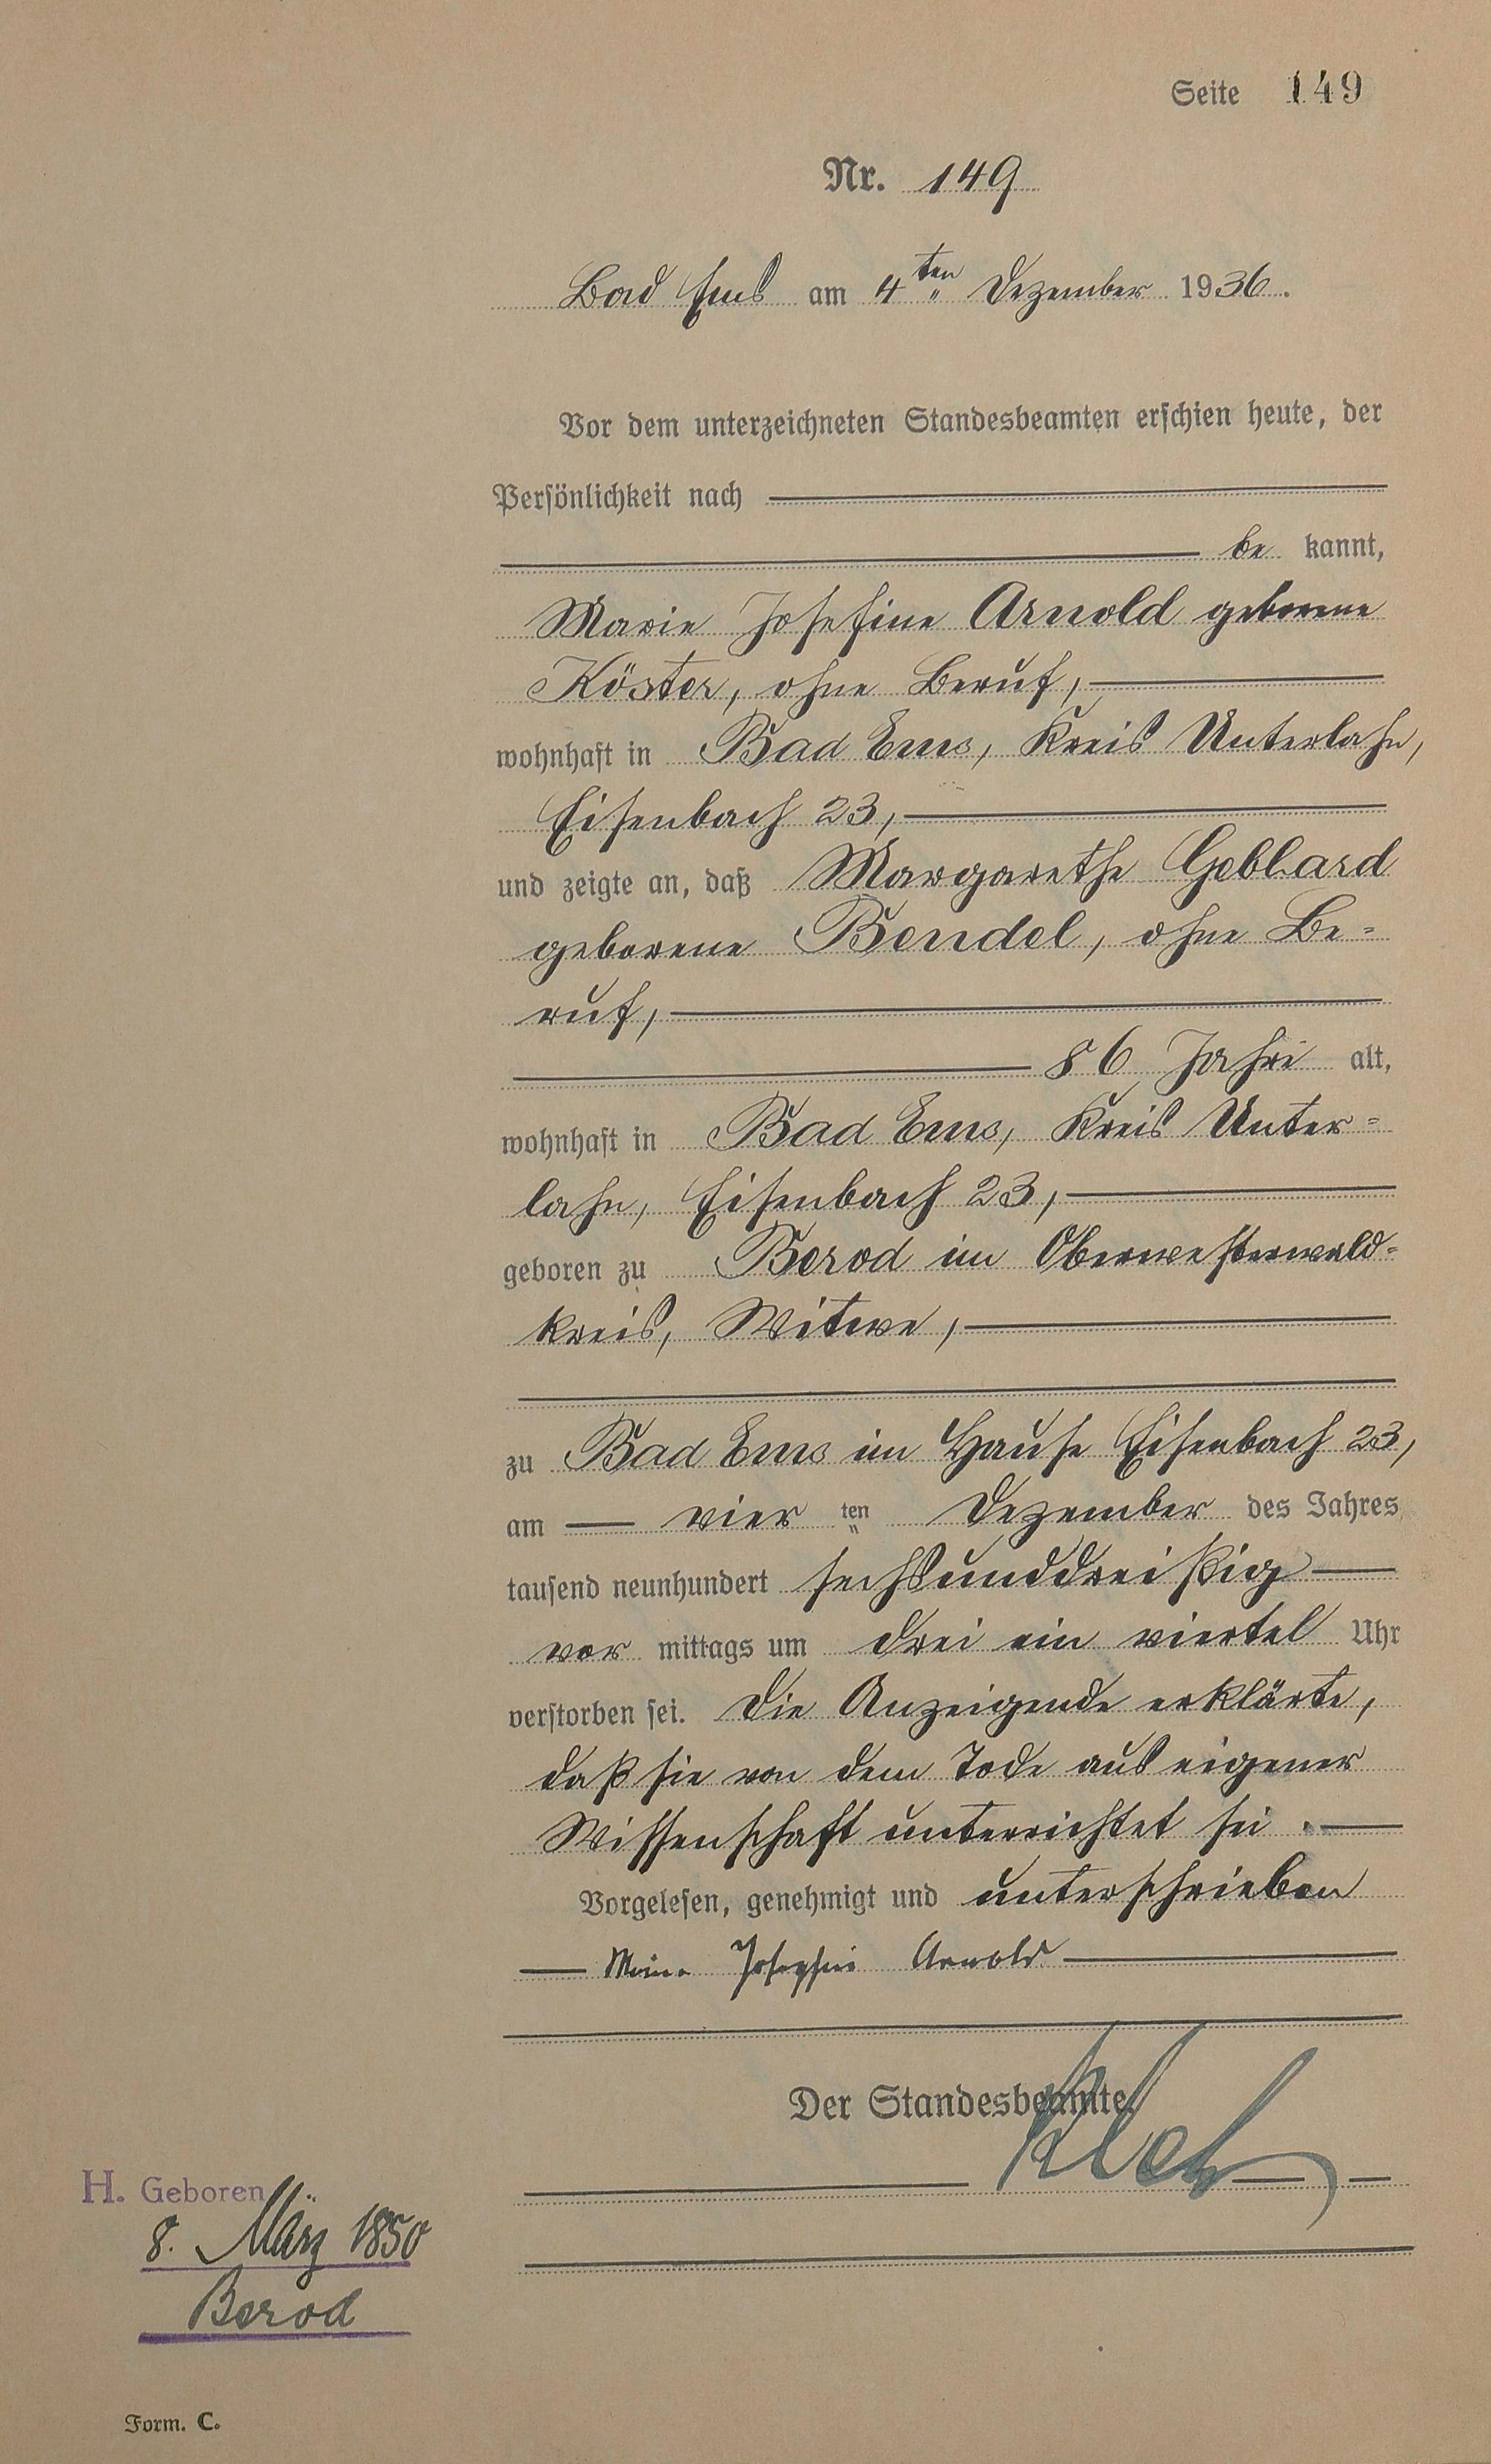 Seite 149
Nr. 149
Bad Ems am 4ten Dezember 1936.
Vor dem unterzeichneten Standesbeamten erschien heute, der
Persönlichkeit nach
be kannt,
Marie Josefine Arnold geborene
Köster, ohne Beruf,
wohnhaft in Bad Ems, Kreis Unterlahn,
Eisenbach 23,
und zeigte an, daß Margarethe Gebhard
geborene Bendel, ohne Be=
ruf,
86 Jahre alt,
wohnhaft in Bad Ems, Kreis Unter=
lahn, Eisenbach 23,
geboren zu Berod im Oberwesterwald=
kreis, Witwe,
zu Bad Ems im Hause Eisenbach 23,
am vier ten Dezember des Jahres
tausend neunhundert sechsunddreißig
vor mittags um drei ein viertel Uhr
verstorben sei. Die Anzeigende erklärte,
daß sie von dem Tode aus eigener
Wissenschaft unterrichtet sei.
Vorgelesen, genehmigt und unterschrieben
Josephine Arnold
Der Standesbeamte.
H. Geboren
8. März 1850
Berod
Form. C.